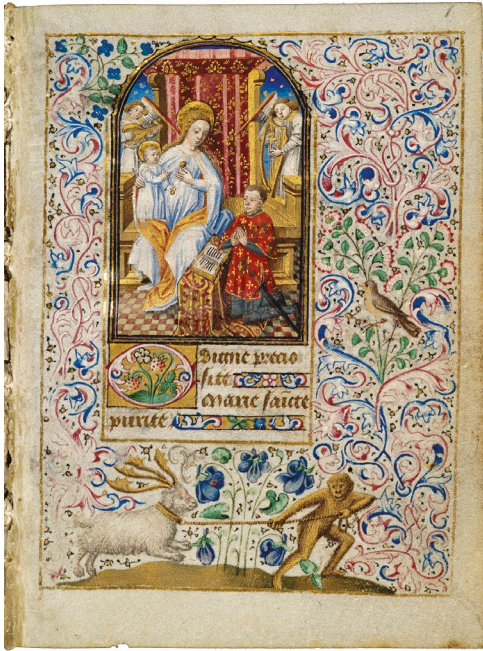 1
Diuine precio
site
Marie saīcte
purite